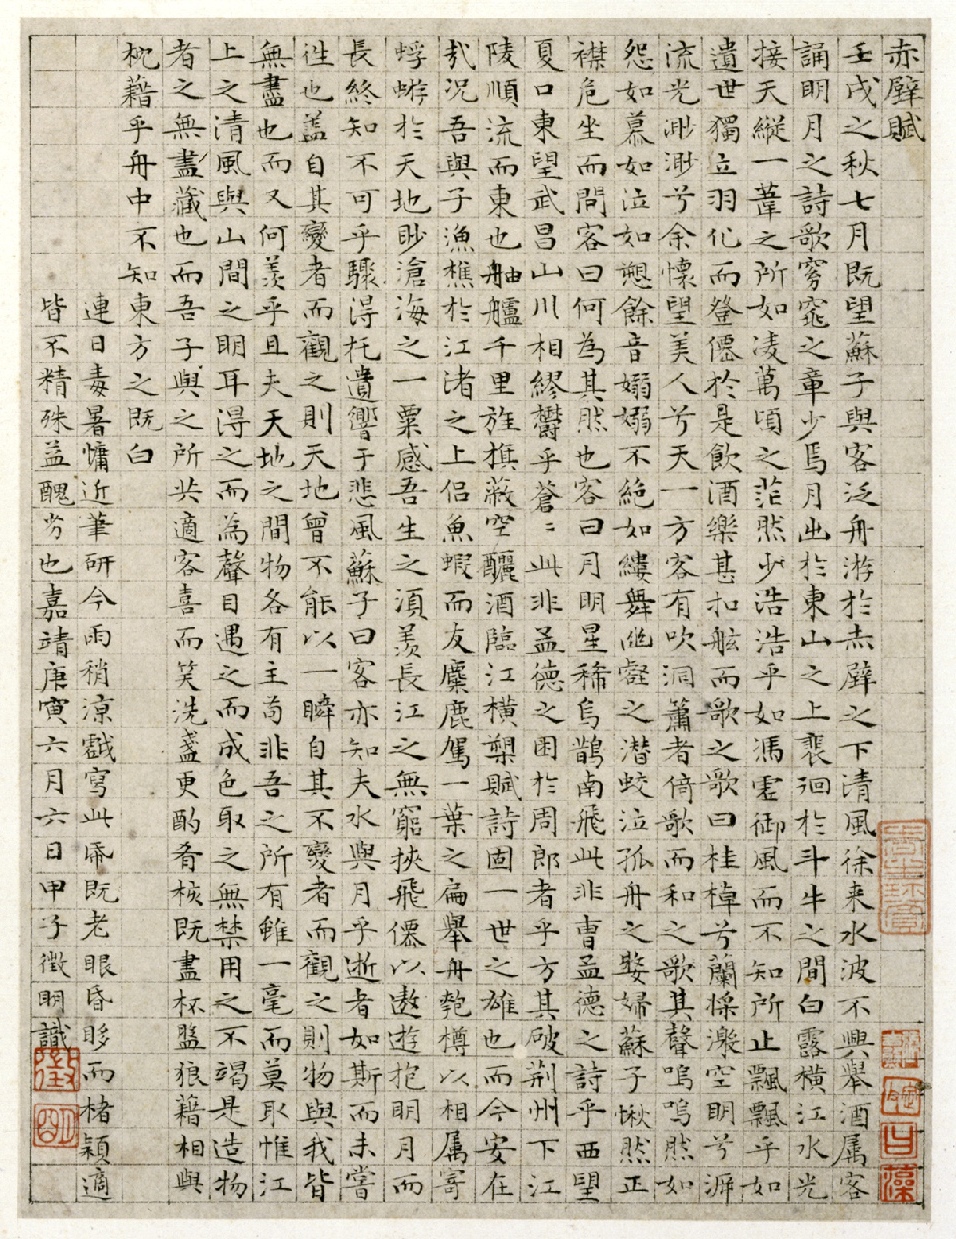 赤壁賦
壬戌之秋七月既望蘇子與客泛舟游於赤壁之下清風徐来水波不興舉酒属客
誦明月之詩歌窈窕之章少焉月出於東山之上裴徊於斗牛之間白露横江水光
接天縱一葦之所如凌萬頃之茫然少浩浩乎如馮虚御風而不知所止飄飄乎如
遺世獨立羽化而登僊於是飲酒樂甚扣舷而歌之歌曰桂棹兮蘭槳激空明兮泝
流光渺渺兮余懷望美人兮天一方客有吹洞簫者倚歌而和之歌其聲嗚嗚然如
怨如慕如泣如愬餘音嫋嫋不絶如縷舞幽壑之潜蛟泣孤舟之嫠婦蘇子愀然正
襟危坐而問客曰何為其然也客曰月明星稀烏鵲南飛此非曹孟德之詩乎西望
夏口東望武昌山川相繆欝乎蒼〻此非孟德之困於周郎者乎方其破荆州下江
陵順流而東也舳艫千里旌旗蔽空釃酒臨江横槊賦詩固一世之雄也而今安在
㢤况吾與子漁樵於江渚之上侣魚蝦而友麋鹿駕一葉之扁舉舟匏樽以相属寄
蜉蝣於天地眇滄海之一粟感吾生之湏羡長江之無窮挟飛僊以遨遊抱明月而
長終知不可乎驟得托遺響于悲風蘇子曰客亦知夫水與月乎逝者如斯而未嘗
往也盖自其變者而觀之則天地曾不能以一瞬自其不變者而觀之則物與我皆
無盡也而又何羡乎且夫天地之間物各有主苟非吾之所有雖一毫而莫取惟江
上之清風與山間之明耳得之而為聲目遇之而成色取之無禁用之不竭是造物
者之無盡藏也而吾子與之所共適客喜而笑洗盞更酌肴核既盡杯盤狼藉相與
枕藉乎舟中不知東方之既白
連日毒暑慵近筆研今雨稍涼戲寫此㡧既老眼昏眵而楮穎適
皆不精殊益醜劣也嘉靖庚寅六月六日甲子徵明識
徵
明